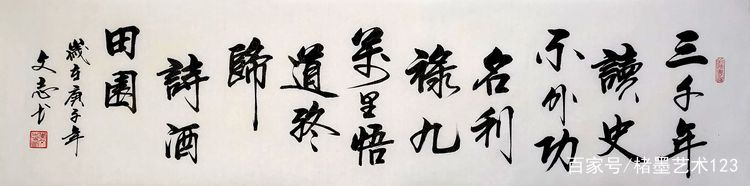 三千年
讀史
不外功
名利
祿九
萬里悟
道終
歸
詩酒
田園
歲在庚子年
文志书
百家号/楮墨艺术123